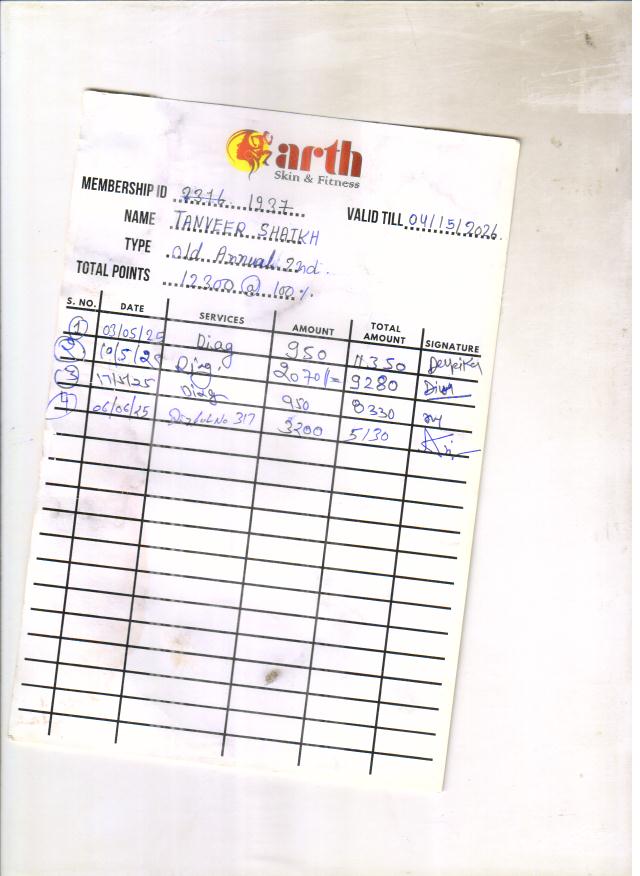 arth
Skin & Fitness
MEMBERSHIP ID 2316 1937
VALID TILL 04/15/2026
NAME TANVEER SHAIKH
TYPE old Annual 2nd.
TOTAL POINTS 12300 @ 100%.
S. NO. DATE SERVICES AMOUNT TOTAL AMOUNT SIGNATURE
1 03/05/25 Diag 950 11350
2 10/5/25 Diag. 2070/= 9280
3 17/5/25 Diag 950 8330
4 06/06/25 No 317 3200 5130